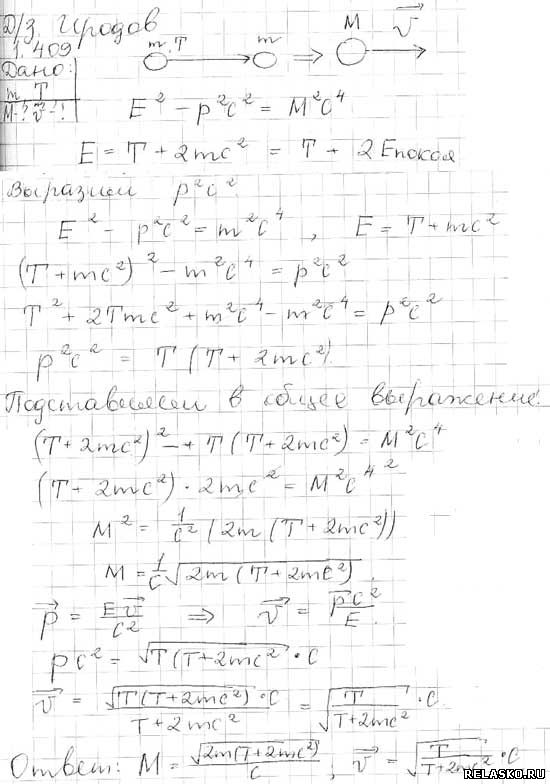 Д/З. Иродов
1. 409
Дано:
m T
M-? v⃗-?
m T m ⇒ M v⃗
E² - p²c² = M²c⁴
E = T + 2mc² = T + 2Eпокоя
Выразим p²c²
E² - p²c² = m²c⁴ , E = T + mc²
(T + mc²)² - m²c⁴ = p²c²
T² + 2Tmc² + m²c⁴ - m²c⁴ = p²c²
p²c² = T(T + 2mc²)
Подставляем в общее выражение:
(T + 2mc²)² - T(T + 2mc²) = M²c⁴
(T + 2mc²) · 2mc² = M²c⁴ ²
M² = 1/c² (2m(T + 2mc²))
M = 1/c √(2m(T + 2mc²)) .
p⃗ = Ev⃗/c² ⇒ v⃗ = p⃗c²/E .
pc² = √(T(T + 2mc²)) · c
v⃗ = √(T(T + 2mc²)) · c / (T + 2mc²) = √(T/(T + 2mc²)) · c
Ответ: M = √(2m(T + 2mc²))/c ; v⃗ = √(T/(T + 2mc²)) · c
RELASKO.RU